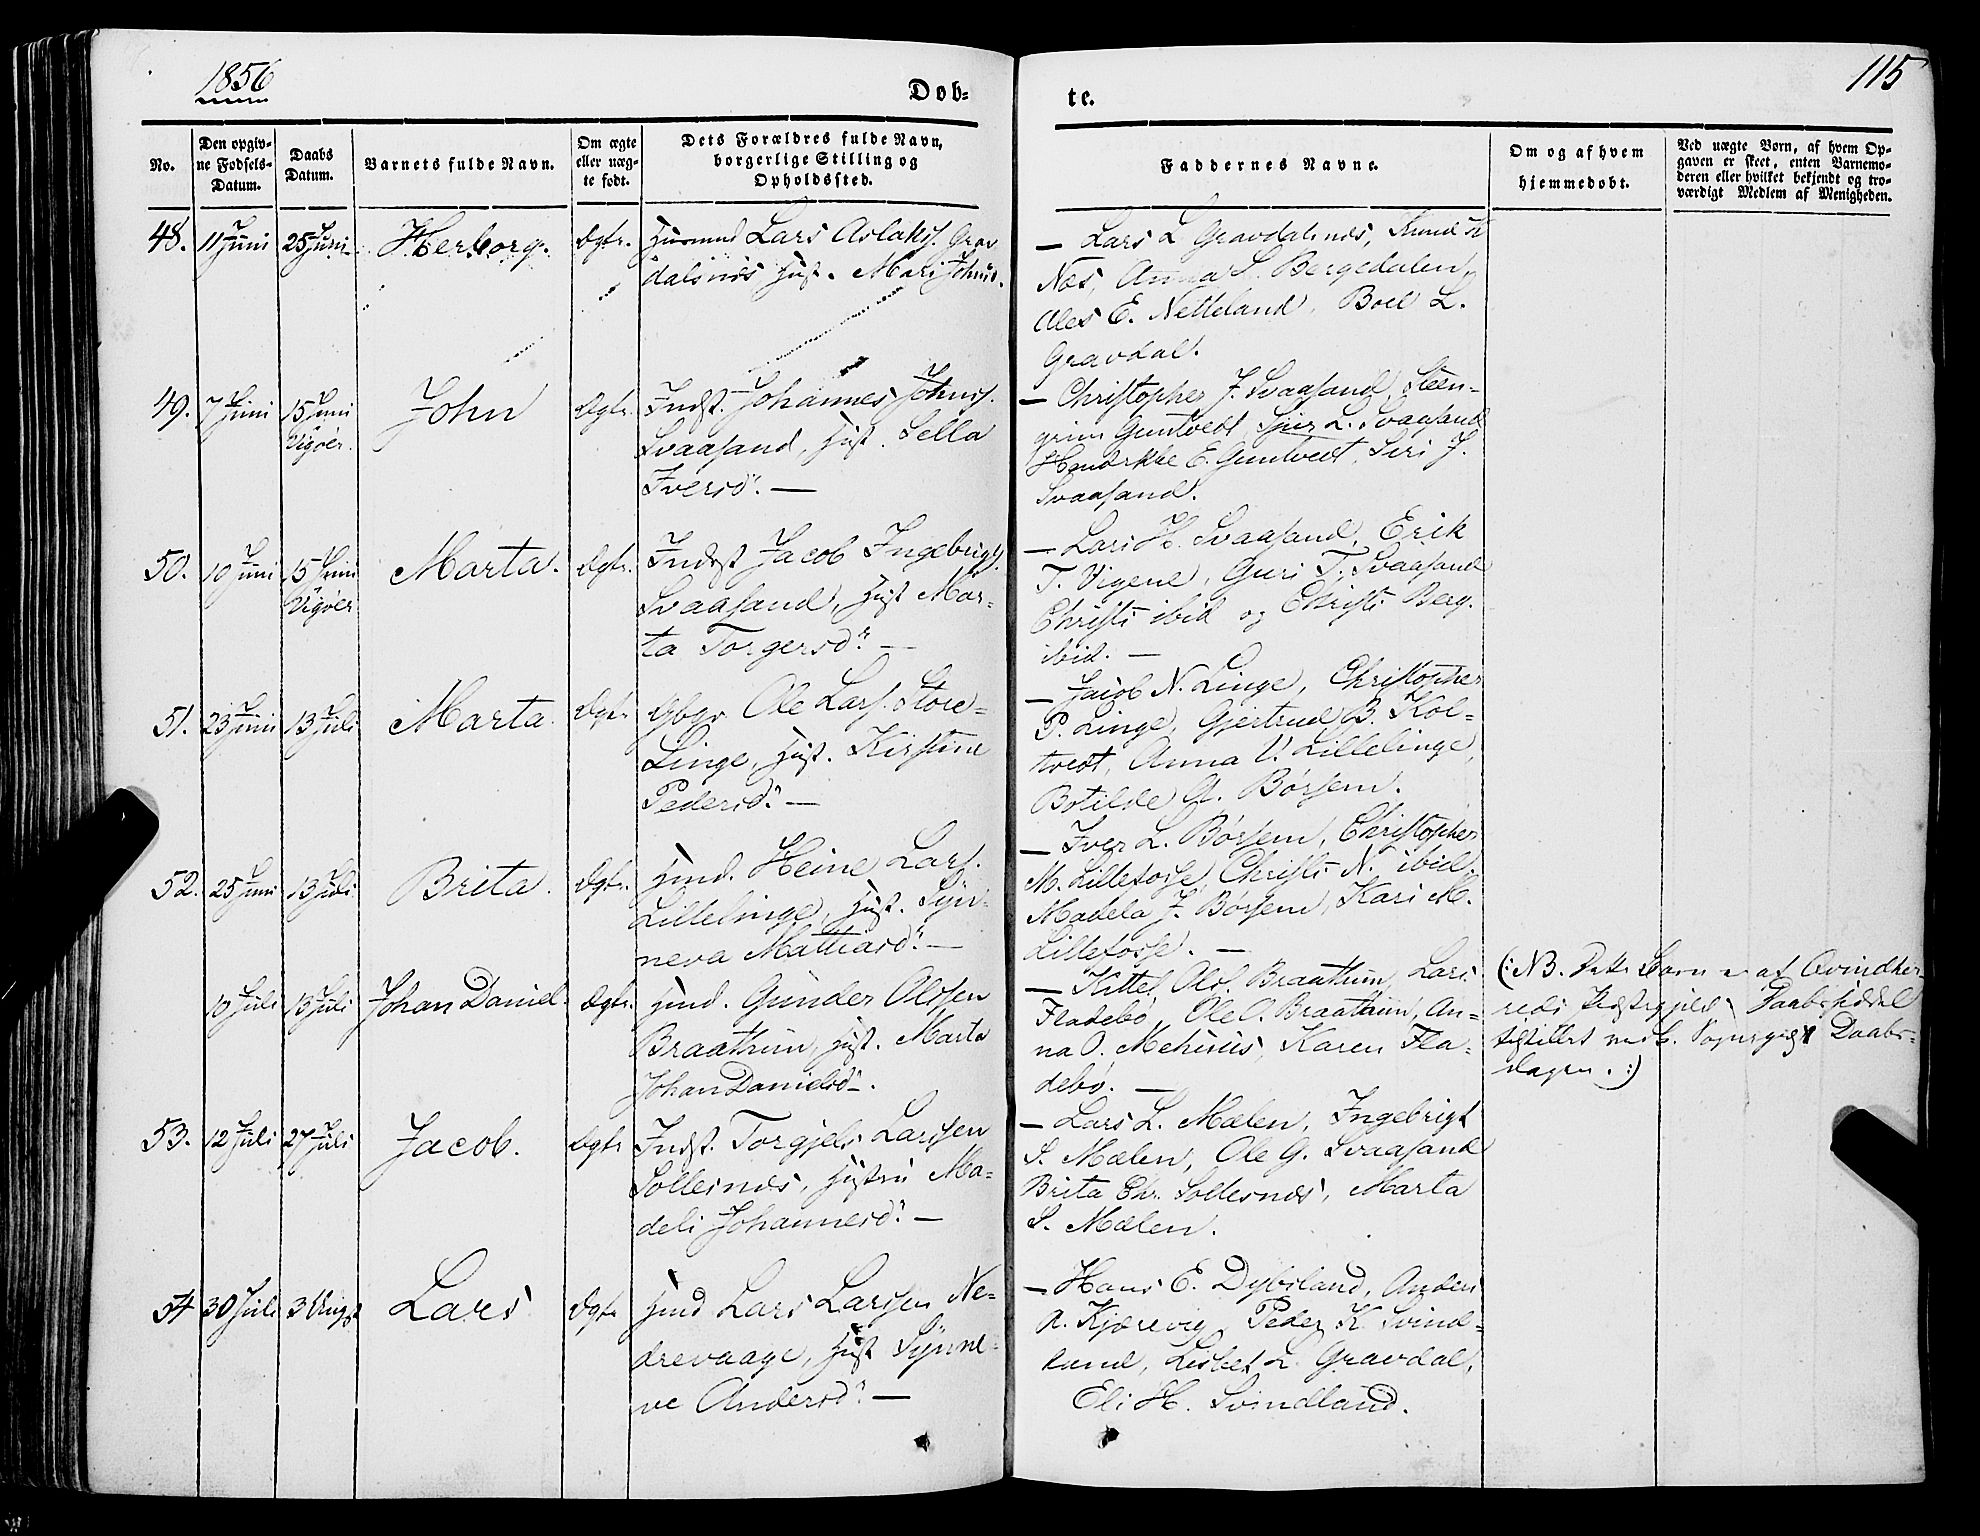 1856
Døb-
te.
115
No.
Den opgiv-
ne Fødsels-
Datum.
Daabs
Datum.
Barnets fulde Navn.
Om ægte
eller uæg-
te født.
Dets Forældres fulde Navn,
borgerlige Stilling og
Opholdssted.
Faddernes Navne.
Om og af hvem
hjemmedøbt.
Ved uægte Børn, af hvem Op-
gaven er skeet, enten Barnemo-
deren eller hvilket bekjendt og tro-
værdigt Medlem af Menigheden.
48. 11 Juni 25 Juni Herborg. Ægte. Huusmd Lars Aslaks. Grav
dalsnæs Hust. Mari Johnsd.
— Lars L Gravdalsnæs, Knud
Næs, Anna L. Bergedalen,
Ales E. Netteland, Boel L.
Gravdal.
49. 7 Juni 15 Juni
Vigöer.
John Ægte. Indst. Johannes Johns.
Svaasand, Hust. Sella
Iversd. —
— Christopher J. Svaasand, Steen-
grim Guntvedt Sjur L. Svaasand
E. Guntvedt, Siri J.
Svaasand.
50. 10 Juni 15 Juni
Vigöer
Marta. Ægte. Indst Jacob Ingebrigts.
Svaasand, Hust Mar-
ta Torgersd. —
— Lars H. Svaasand, Erik
T. Vigene, Guri T. Svaasand
Christi ibid og Christi Berg.
ibid. —
51. 23 Juni 13 Juli Marta. Ægte. Gbgr. Ole Lars. Store-
Linge, Hust. Kirstine
Pedersd. —
— Jacob N. Linge, Christopher
P. Linge, Gjertrud B. Kol-
tvedt, Anna V. Lillelinge,
Botilde A. Börsem.
52. 25 Juni 13 Juli Brita. Ægte. Hmd. Heine Lars.
Lillelinge, Hust. Syn-
neva Mattiasd. —
— Iver L. Börsem, Christopher
M. Lilletosse, Christi N. ibid,
Madela J. Börsem, Kari M.
Lilletosse. —
10 Juli 13 Juli Johan Daniel. Ægte. Hmd. Gunder Olssen
Braathun, Hust. Marta
Johan Danielsd.
— Kittel Ols. Braathun, Lars
Fladebö, Ole O. Braathun, An-
na O. Mehuus, Karen Fla-
debö. —
(: NB. Dette Barn er af Qvindher-
reds Præstegjeld, Daabsseddel
tilstillet Daabs-
dagen. :)
53. 12 Juli 27 Juli Jacob. Ægte Indst. Torgjels Larssen
Sollesnæs, Hustru Ma-
deli Johannesd. —
— Lars L. Mælen, Ingebrigt
S. Mælen, Ole G. Svaasand
Brita Chr. Sollesnæs, Marta
S. Mælen.
54 30 Juli 3 Augst Lars Ægte Hmd Lars Larssen Ne-
drevaage, Hust Synne-
ve Andersd. —
— Hans E. Dybsland, Anders
A. Kjærevig, Peder K. Svind-
land, Lisbet L. Gravdal,
Eli H. Svindland.